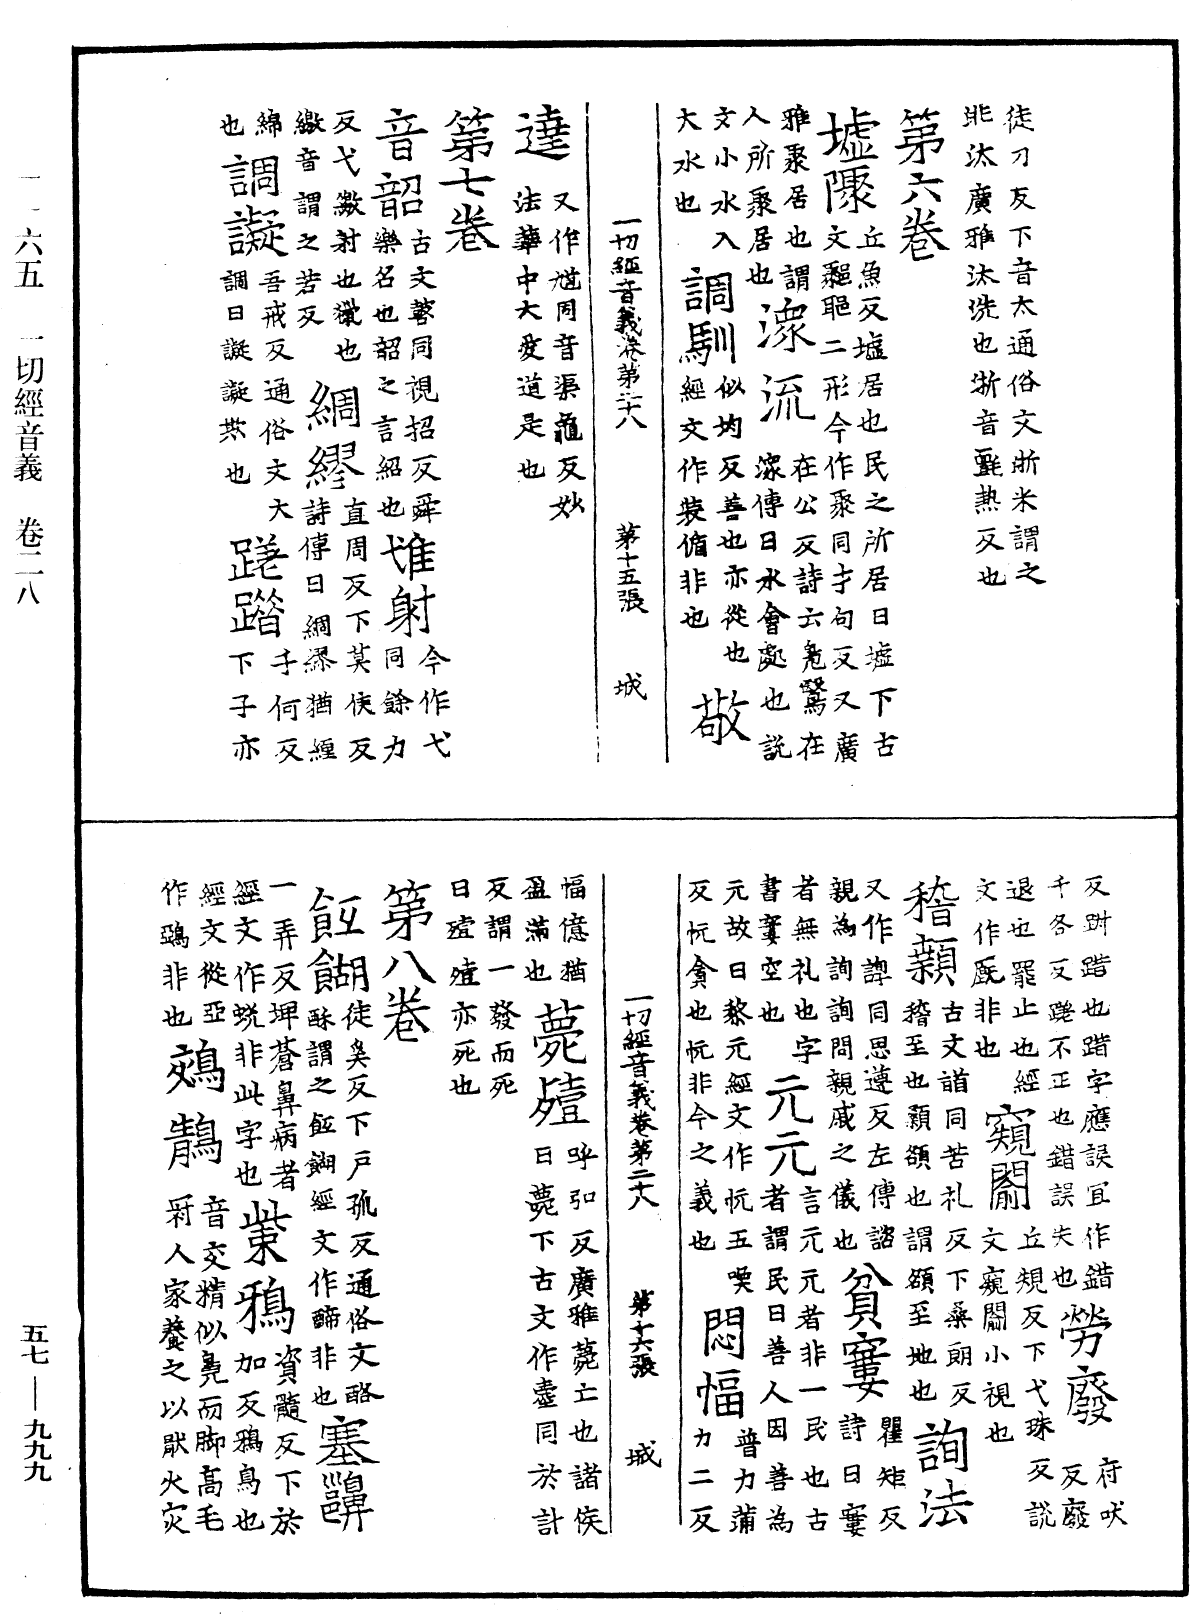 一一六五　一切經音義　卷二八
徒刀反下音太通俗文淅米謂之
㳅汰廣雅汰洗也淅音㽅熱反也
第六卷
墟聚
丘魚反墟居也民之所居曰墟下古
文𨞬𦕓二形今作聚同才句反又廣
雅聚居也謂
人所聚居也
潨流
在公反詩云鳧鷖在
潨傳曰水會處也說
文小水入
大水也
調馴
似均反善也亦從也
經文作裝脩非也
敬
一切經音義卷第二十八　第十五張　城
逵
又作馗同音渠龜反妙
法華中大愛道是也
第七卷
音韶
古文䪫同視招反舜
樂名也韶之言紹也
堆射
今作弋
同餘力
反弋繳射也獵也
繳音謂之若反
綢繆
直周反下莫侯反
詩傳曰綢繆猶纏
綿
也
調譺
吾戒反通俗文大
調曰譺譺欺也
蹉踖
千何反
下子亦
反跗踖也踖字應誤宜作錯
千各反蹉不正也錯誤失也
勞廢
府吠
反廢
退也罷止也經
文作𢊍非也
窺闚
丘規反下弋珠反說
文窺闚小視也
稽顙
古文䭫同苦礼反下桑朗反
稽至也顙額也謂額至地也
詢法
又作諄同思遵反左傳諮
親為詢詢問親戚之儀也
貧窶
瞿矩反
詩曰窶
者無礼也字
書窶空也
元元
言元元者非一民也古
者謂民曰善人因善為
元故曰黎元經文作忨五喚
反忨貪也忨非今之義也
悶愊
普力蒲
力二反
愊億猶
盈滿也
薨殪
呼弘反廣雅薨亡也諸侯
曰薨下古文作𡔷同於計
反謂一發而死
曰殪殪亦死也
一切經音義卷第二十八　第十六張　城
第八卷
䬫餬
徒奚反下戶孤反通俗文酪
酥謂之䬫餬經文作醍非也
塞齆
一弄反埤蒼鼻病者
經文作蛻非此字也
䉅鴉
資髓反下於
加反鴉鳥也
經文從亞
作鵶非也
鵁鶄
音交精似鳧而脚高毛
冠人家養之以厭火灾
五七—九九九